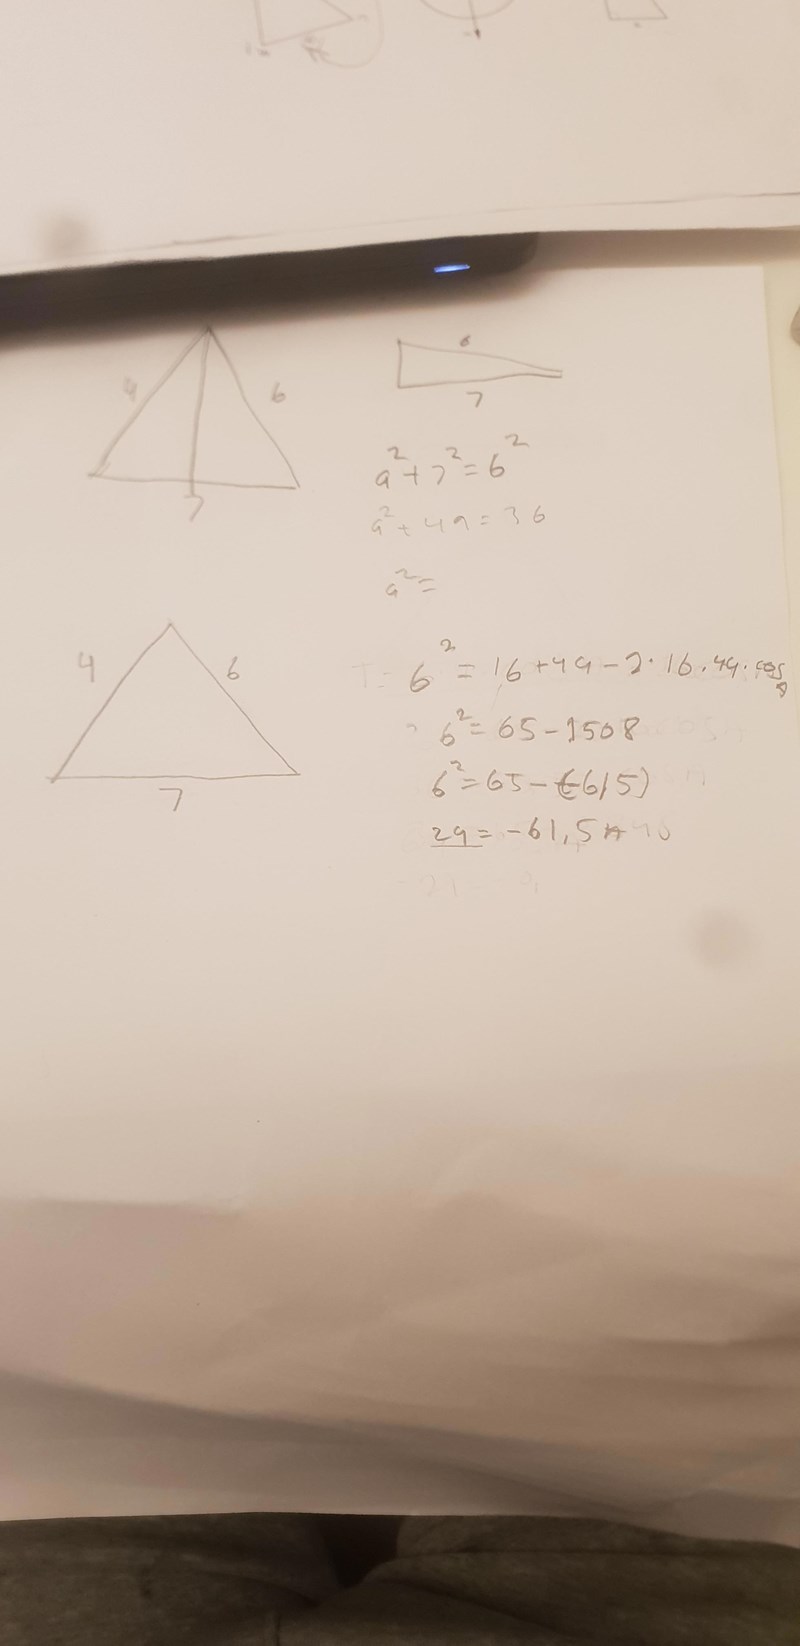 4
6
7
6
7
a²+7²=6²
a²+49=36
a²=
4
6
7
6²=16+49-2·16·49·cos
6²=65-1508
6²=65-(-615)
29=-61,5